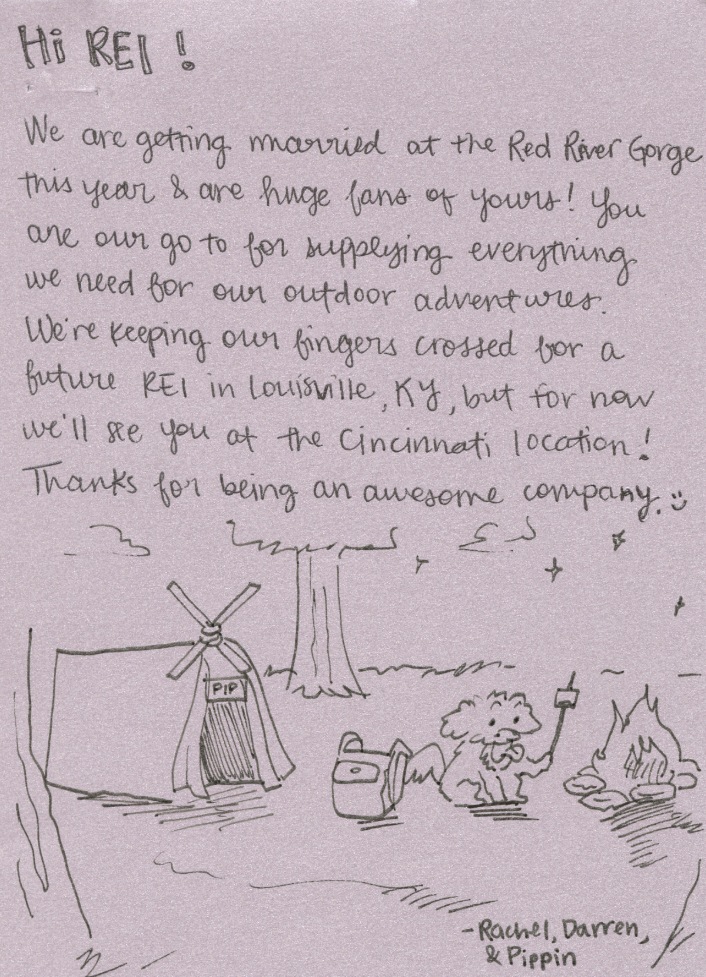 Hi REI!
We are getting married at the Red River Gorge
this year & are huge fans of yours! You
are our go to for supplying everything
we need for our outdoor adventures.
We're keeping our fingers crossed for a
future REI in Louisville, KY, but for now
we'll see you at the Cincinnati location!
Thanks for being an awesome company. :)
PIP
-Rachel, Darren,
& Pippin